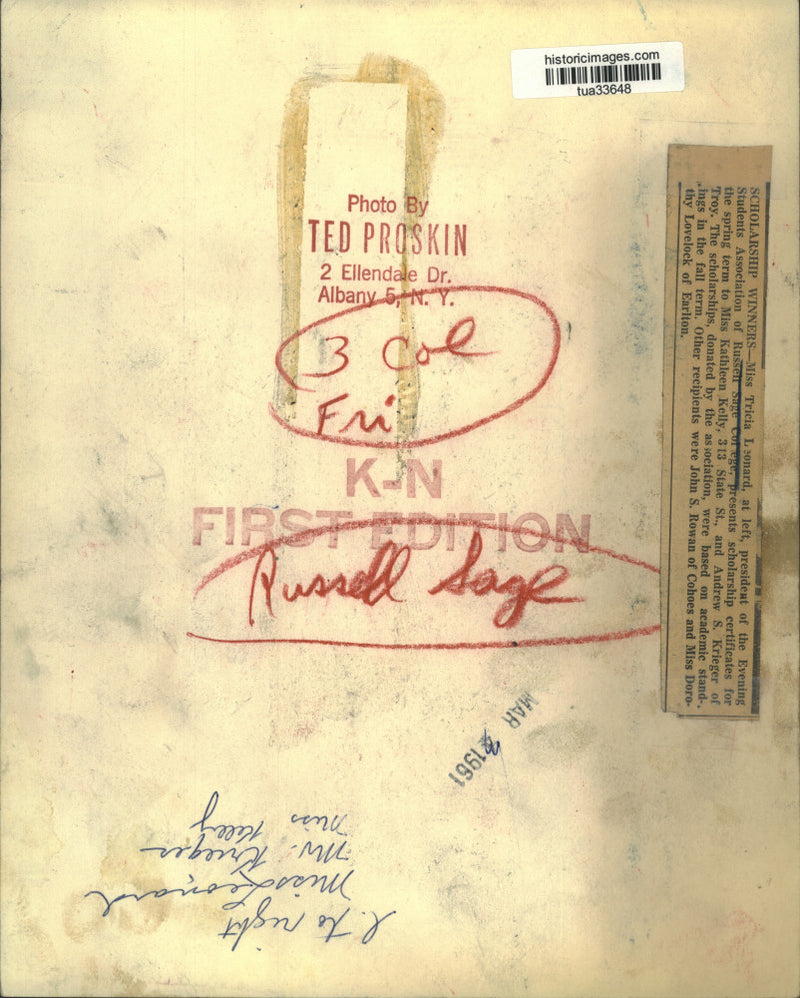 historicimages.com
tua33648
Photo By
TED PROSKIN
2 Ellendale Dr.
Albany 5, N. Y.
3 Col
Fri
K-N
FIRST EDITION
Russell Sage
SCHOLARSHIP WINNERS—Miss Tricia Leonard, at left, president of the Evening
Students Association of Russell Sage College, presents scholarship certificates for
the spring term to Miss Kathleen Kelly, 313 State St., and Andrew S. Krieger of
Troy. The scholarships, donated by the association, were based on academic stand-
ings in the fall term. Other recipients were John S. Rowan of Cohoes and Miss Doro-
thy Lovelock of Earlton.
MAR 1961
l. to right
Miss Leonard
Mr. Krieger
Miss Kelly